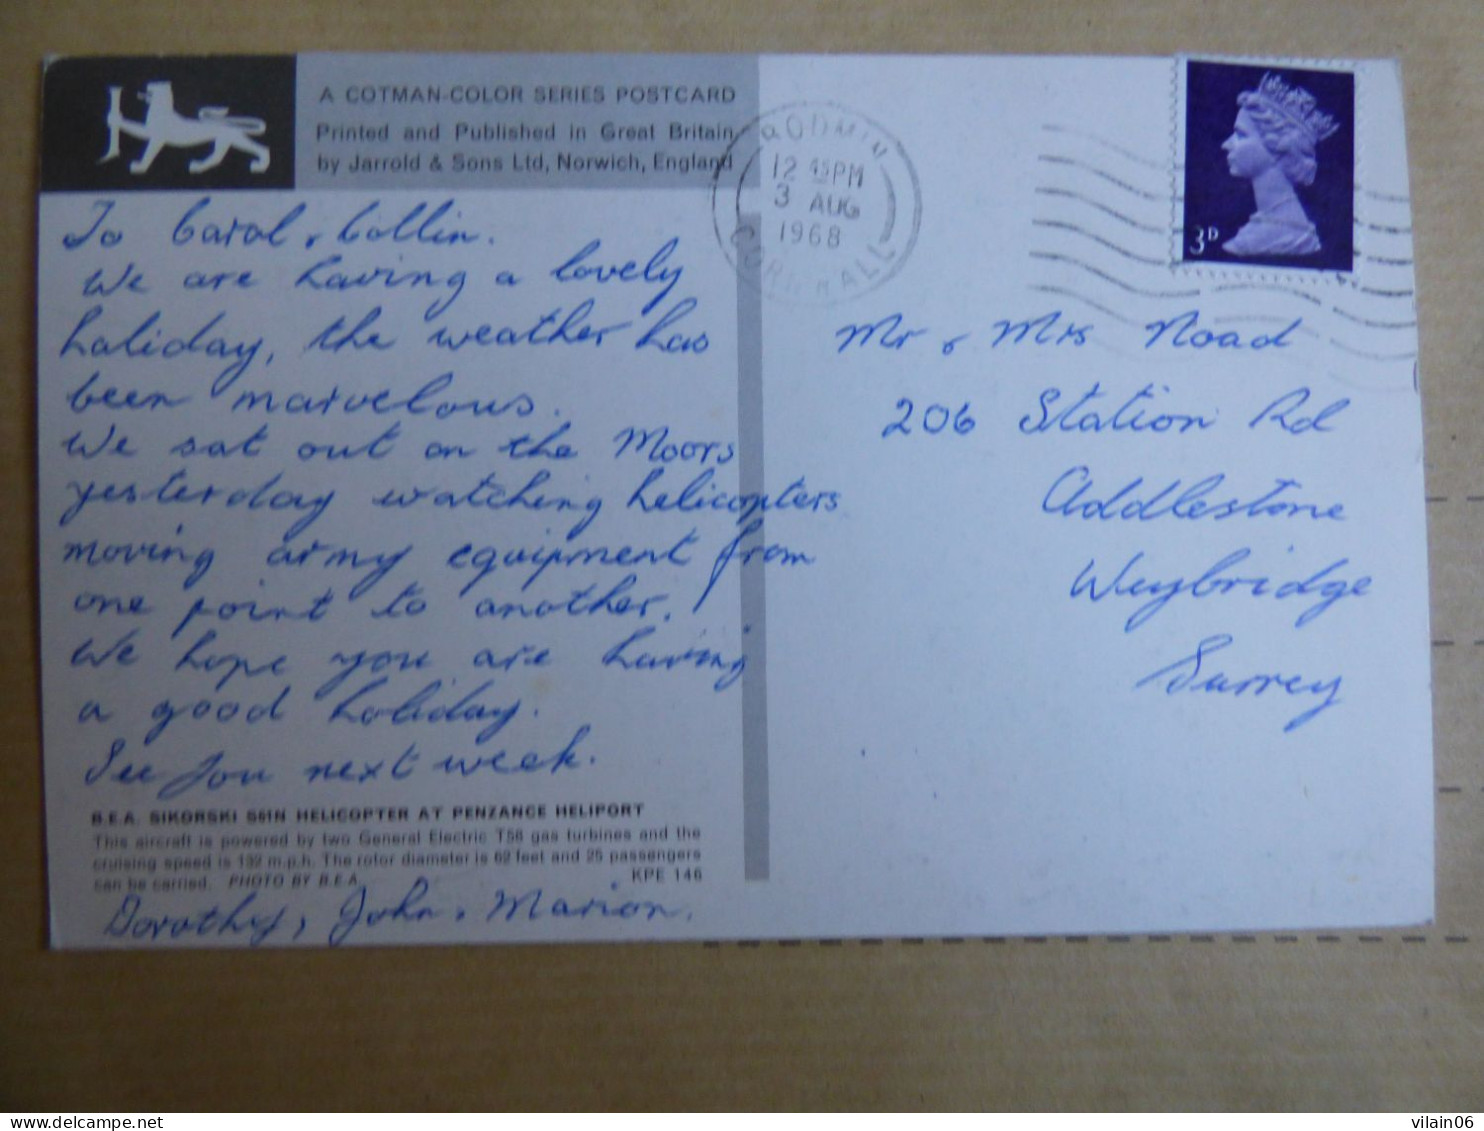 A COTMAN-COLOR SERIES POSTCARD
Printed and Published in Great Britain
by Jarrold & Sons Ltd, Norwich, England
BODMIN
12 45 PM
3 AUG
1968
CORNWALL
3D
To Carol & Collin.
We are having a lovely
holiday, the weather has
been marvelous.
We sat out on the Moors
yesterday watching helicopters
moving army equipment from
one point to another.
We hope you are having
a good holiday.
See you next week.
B.E.A. SIKORSKI S61N HELICOPTER AT PENZANCE HELIPORT
This aircraft is powered by two General Electric T58 gas turbines and the
cruising speed is 132 m.p.h. The rotor diameter is 62 feet and 25 passengers
can be carried. PHOTO BY B.E.A. KPE 146
Dorothy, John & Marion.
Mr & Mrs Noad
206 Station Rd
Addlestone
Weybridge
Surrey
vilain06